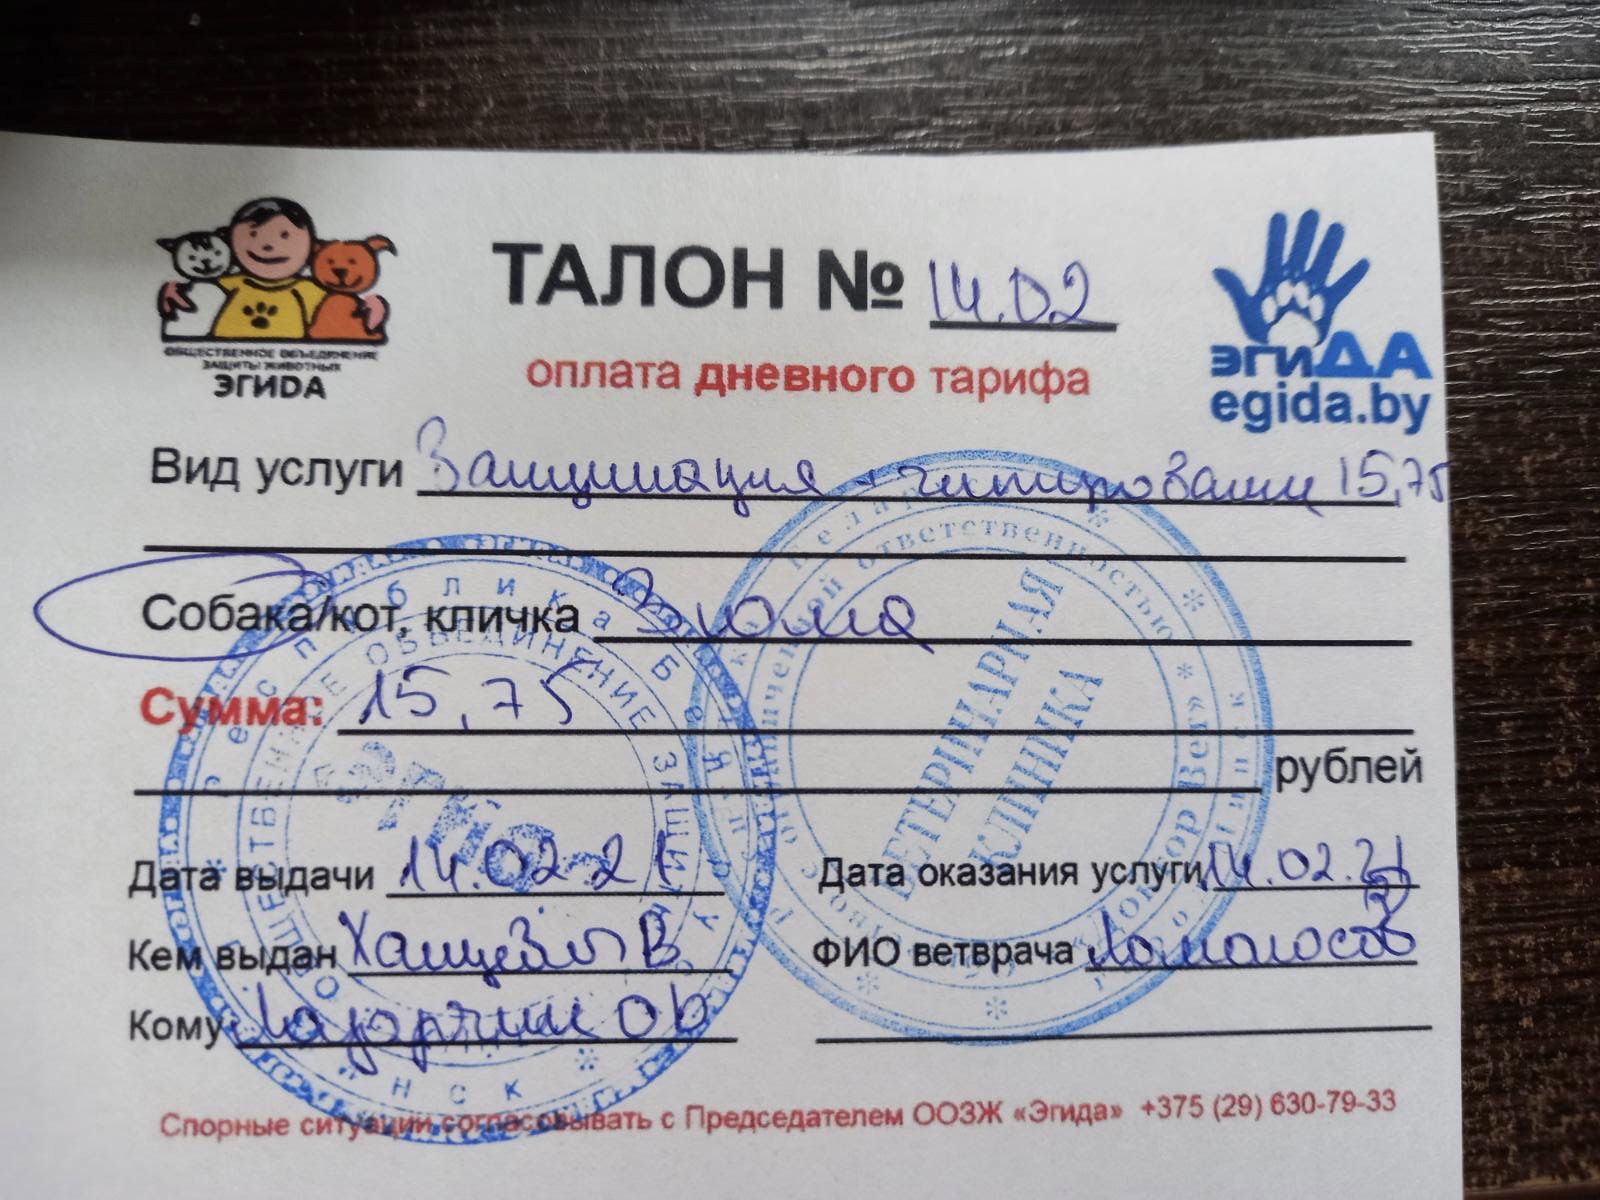 ОБЩЕСТВЕННОЕ ОБЪЕДИНЕНИЕ
ЗАЩИТЫ ЖИВОТНЫХ
ЭГИDА
ТАЛОН № 14.02
оплата дневного тарифа
эгиДА
egida.by
Вид услуги Вакцинация + чипирование 15,75
Собака/кот, кличка Эмма
Сумма: 15,75
рублей
Дата выдачи 14.02.21
Дата оказания услуги 14.02.21
Кем выдан
ФИО ветврача Ломоносов
Кому
Спорные ситуации согласовывать с Председателем ООЗЖ «Эгида» +375 (29) 630-79-33
Республика Беларусь
ОБЩЕСТВЕННОЕ ОБЪЕДИНЕНИЕ ЗАЩИТЫ
ВЕТЕРИНАРНАЯ
КЛИНИКА
ответственностью